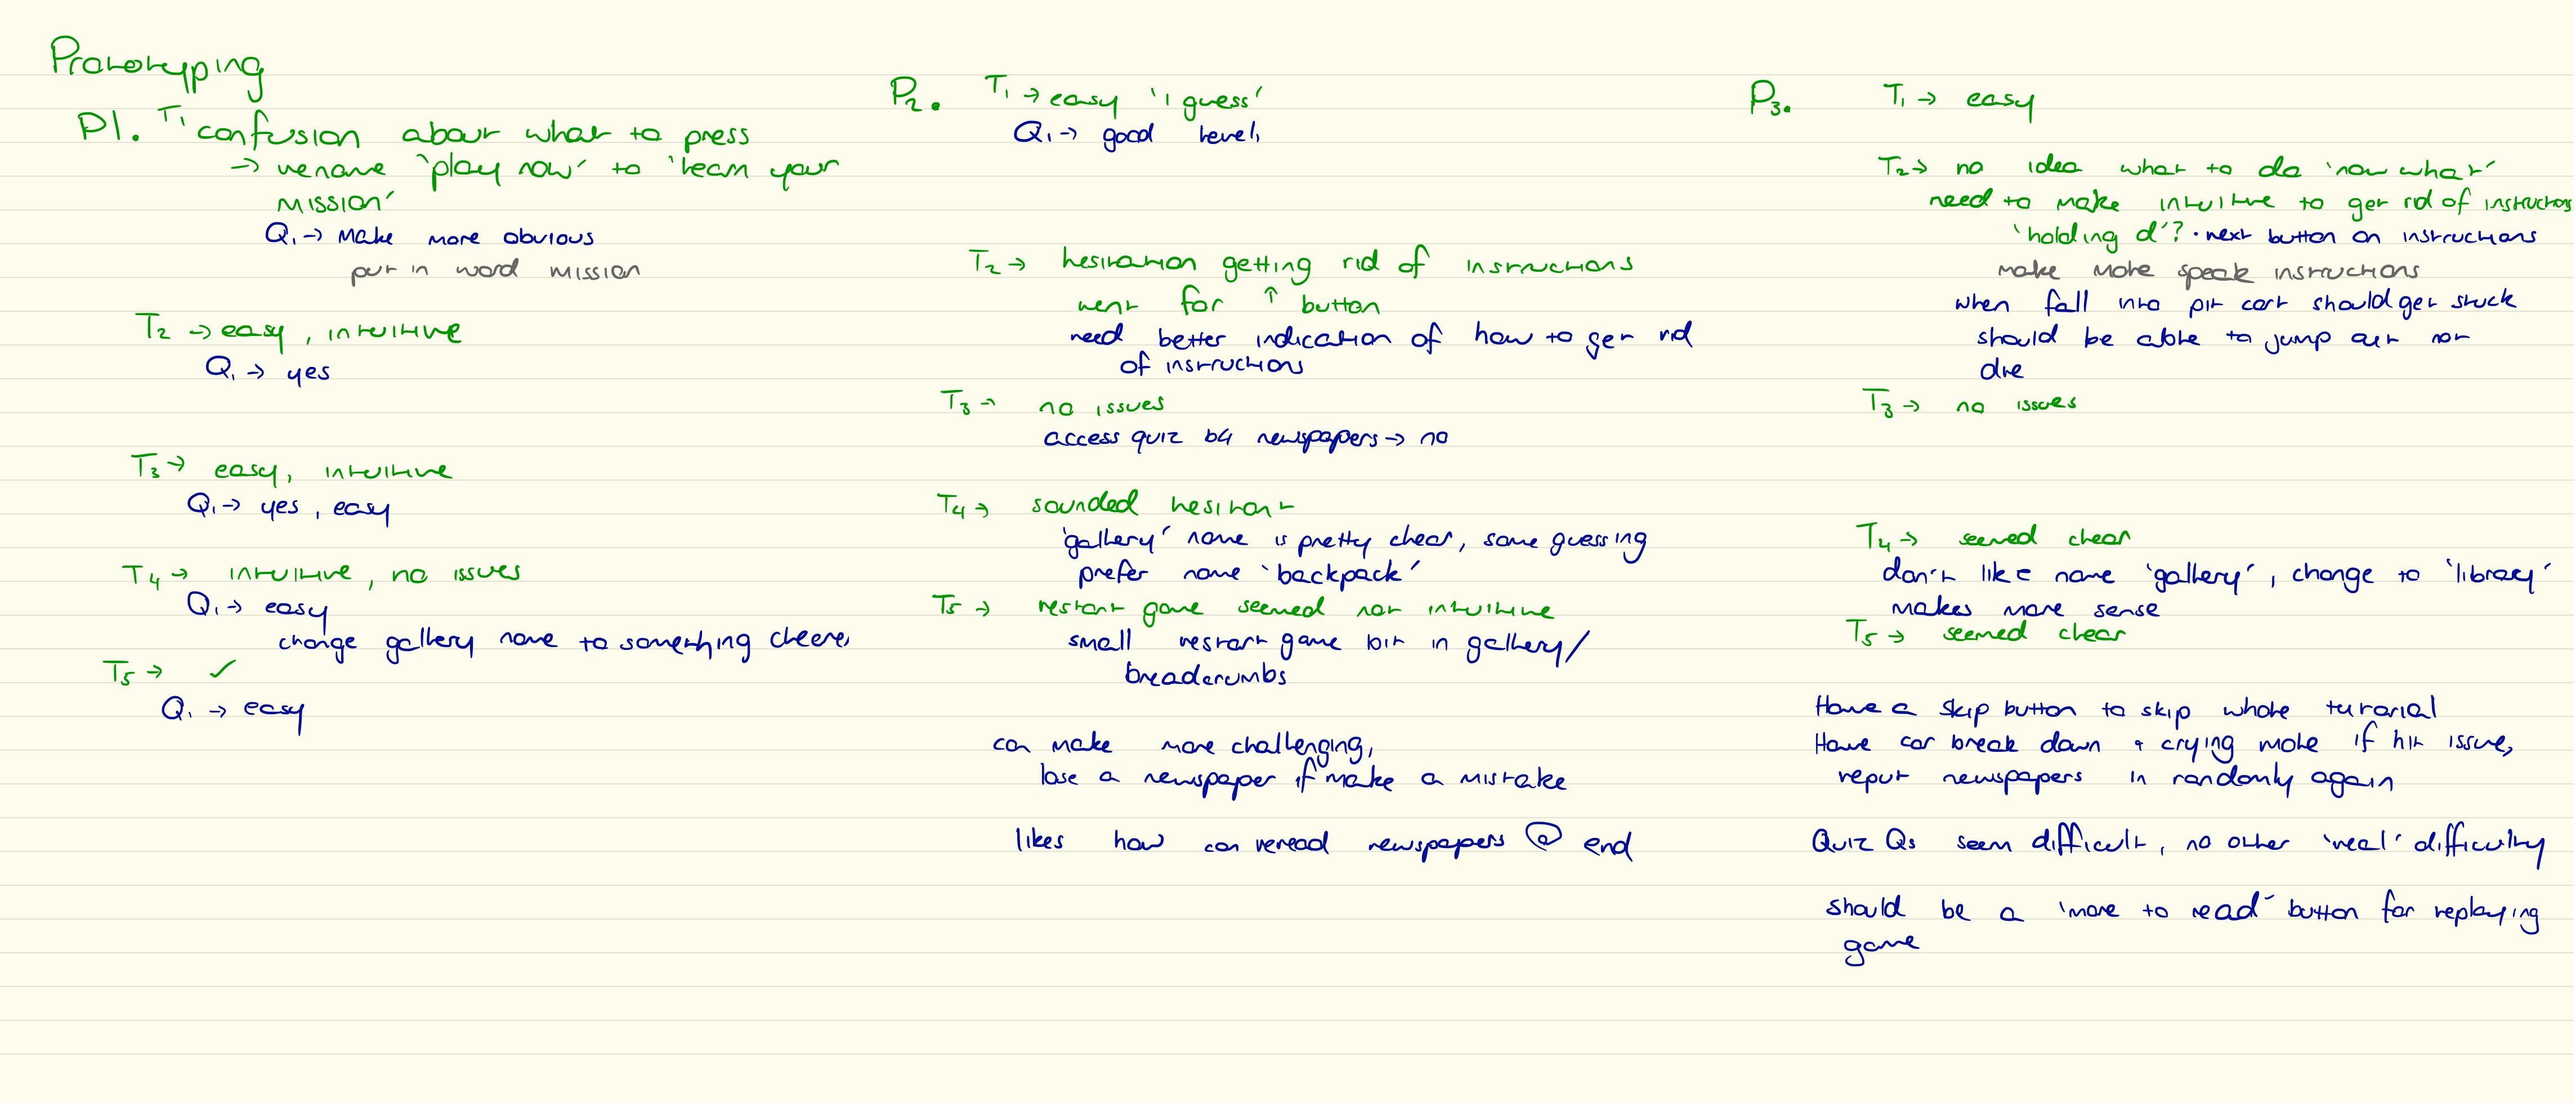 Prototyping
P1. T1 confusion about what to press
→ rename 'play now' to 'learn your
mission'
Q1 → make more obvious
put in word mission
T2 → easy, intuitive
Q1 → yes
T3 → easy, intuitive
Q1 → yes, easy
T4 → intuitive, no issues
Q1 → easy
change gallery name to something clearer
T5 → ✓
Q1 → easy
P2. T1 → easy 'I guess'
Q1 → good level,
T2 → hesitation getting rid of instructions
went for ↑ button
need better indication of how to get rid
of instructions
T3 → no issues
access quiz b4 newspapers → no
T4 → sounded hesitant
'gallery' name is pretty clear, some guessing
prefer name 'backpack'
T5 → restart game seemed not intuitive
small restart game bit in gallery/
breadcrumbs
can make more challenging,
lose a newspaper if make a mistake
likes how can reread newspapers @ end
P3. T1 → easy
T2 → no idea what to do 'now what'
need to make intuitive to get rid of instructions
'holding d'? • next button on instructions
make mole speak instructions
when fall into pit cart should get stuck
should be able to jump out not
die
T3 → no issues
T4 → seemed clear
don't like name 'gallery', change to 'library'
makes more sense
T5 → seemed clear
Have a skip button to skip whole tutorial
Have car break down + crying mole if hit issue,
reput newspapers in randomly again
Quiz Qs seem difficult, no other 'real' difficulty
should be a 'more to read' button for replaying
game